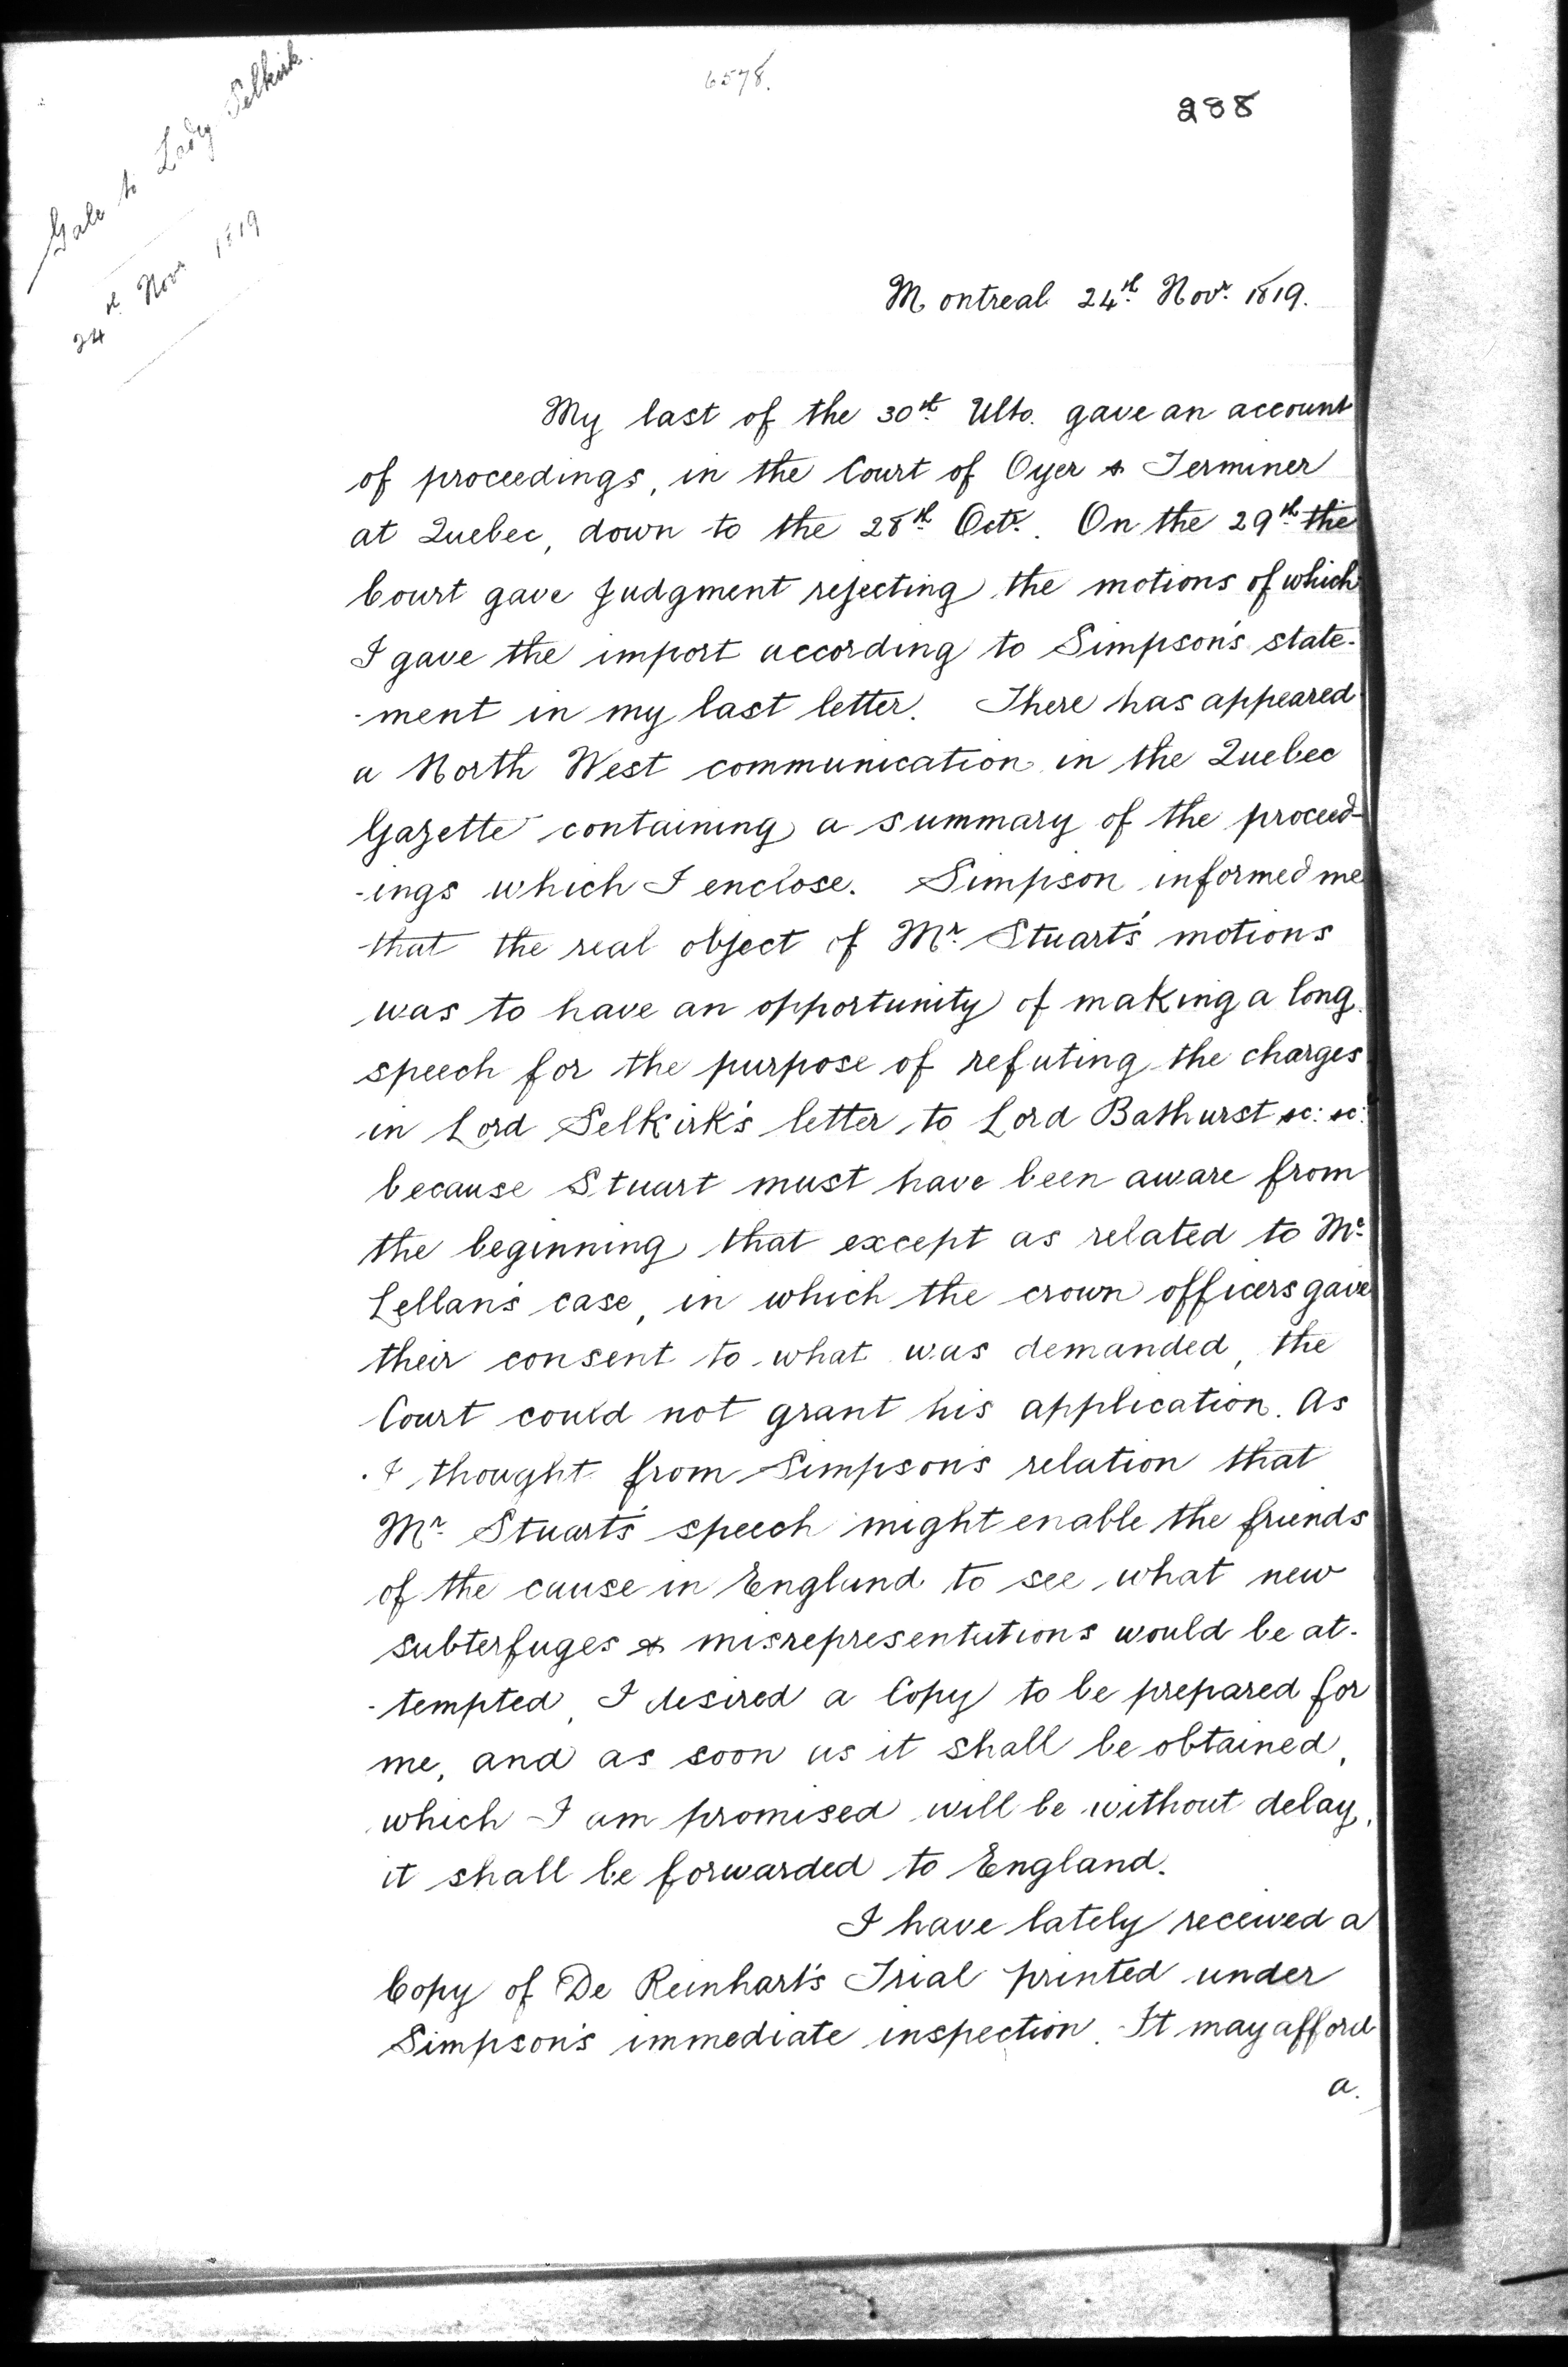 6578.
288
Gale to Lady Selkirk.
24th Novr 1819
Montreal 24th Novr. 1819.
My last of the 30th Ulto. gave an account
of proceedings, in the Court of Oyer & Terminer
at Quebec, down to the 28th Octr. On the 29th the
Court gave Judgment rejecting the motions of which
I gave the import according to Simpson's state-
-ment in my last letter. There has appeared
a North West communication in the Quebec
Gazette containing a summary of the proceed-
-ings which I enclose. Simpson informed me
that the real object of Mr. Stuart's motions
was to have an opportunity of making a long
speech for the purpose of refuting the charges
in Lord Selkirk's letter to Lord Bathurst &c: &c:
because Stuart must have been aware from
the beginning that except as related to Mc
Lellan's case, in which the crown officers gave
their consent to what was demanded, the
Court could not grant his application. As
I thought from Simpson's relation that
Mr. Stuart's speech might enable the friends
of the cause in England to see what new
subterfuges & misrepresentations would be at-
-tempted, I desired a Copy to be prepared for
me, and as soon as it shall be obtained,
which I am promised will be without delay,
it shall be forwarded to England.
I have lately received a
Copy of De Reinhart's Trial printed under
Simpson's immediate inspection. It may afford
a.